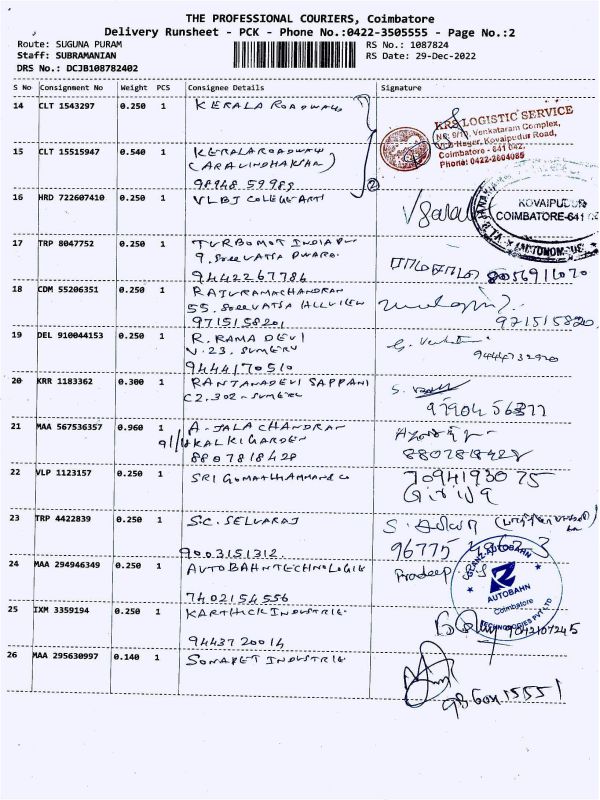 THE PROFESSIONAL COURIERS, Coimbatore
Delivery Runsheet - PCK - Phone No.:0422-3505555 - Page No.:2
Route: SUGUNA PURAM
RS No.: 1087824
Staff: SUBRAMANIAN
RS Date: 29-Dec-2022
DRS No.: DCJB108782402
S No Consignment No Weight PCS Consignee Details Signature
14 CLT 1543297 0.250 1 KERALA ROADWAYS
KRS LOGISTIC SERVICE
Venkataram Complex,
Kovaipudur Road,
Coimbatore - 641 042.
Phone: 0422-2604085
15 CLT 15515947 0.540 1 KERALA ROADWAYS
(ARAVINDHAKSHAN)
2
16 HRD 722607410 0.250 1 VLBJ COLLEGE ARTS
KOVAIPUDUR
COIMBATORE-641
(AUTONOMOUS)
17 TRP 8047752 0.250 1 TURBOMOT INDIA PVT
9442267786
8056911070
18 CDM 55206351 0.250 1 RAJU RAMACHANDRAN
55. SREEVATSA HILLVIEW
9715158201
971515820
19 DEL 910044153 0.250 1 R. RAMA DEVI
V.23. SUMERU
9444170510
20 KRR 1183362 0.300 1 RANJANADEVI SAPPANI
C2.302-SUMERU
21 MAA 567536357 0.960 1 A-JALACHANDRAN
91/ KALKI GARDEN
8807818428
8807818428
22 VLP 1123157 0.250 1 SRI GOMATHI AMMAN & CO
7094193075
23 TRP 4422839 0.250 1 S.C. SELVARAJ
9003151312
96775
24 MAA 294946349 0.250 1 AUTOBAHN TECHNOLOGIE
7402154556
Pradeep
GLANZ AUTOBAHN
AUTOBAHN
Coimbatore
TECHNOLOGIES PVT LTD
25 IXM 3359194 0.250 1 KARTHICK INDUSTRIE
9443720014
26 MAA 295630997 0.140 1 SONAPET INDUSTRIE